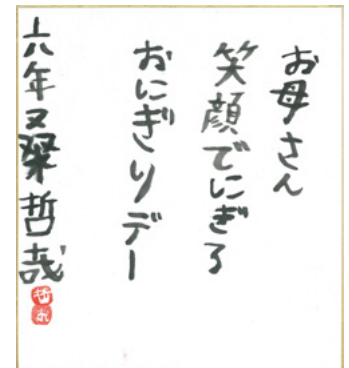 お母さん
笑顔でにぎる
おにぎりデー
六年 哲哉